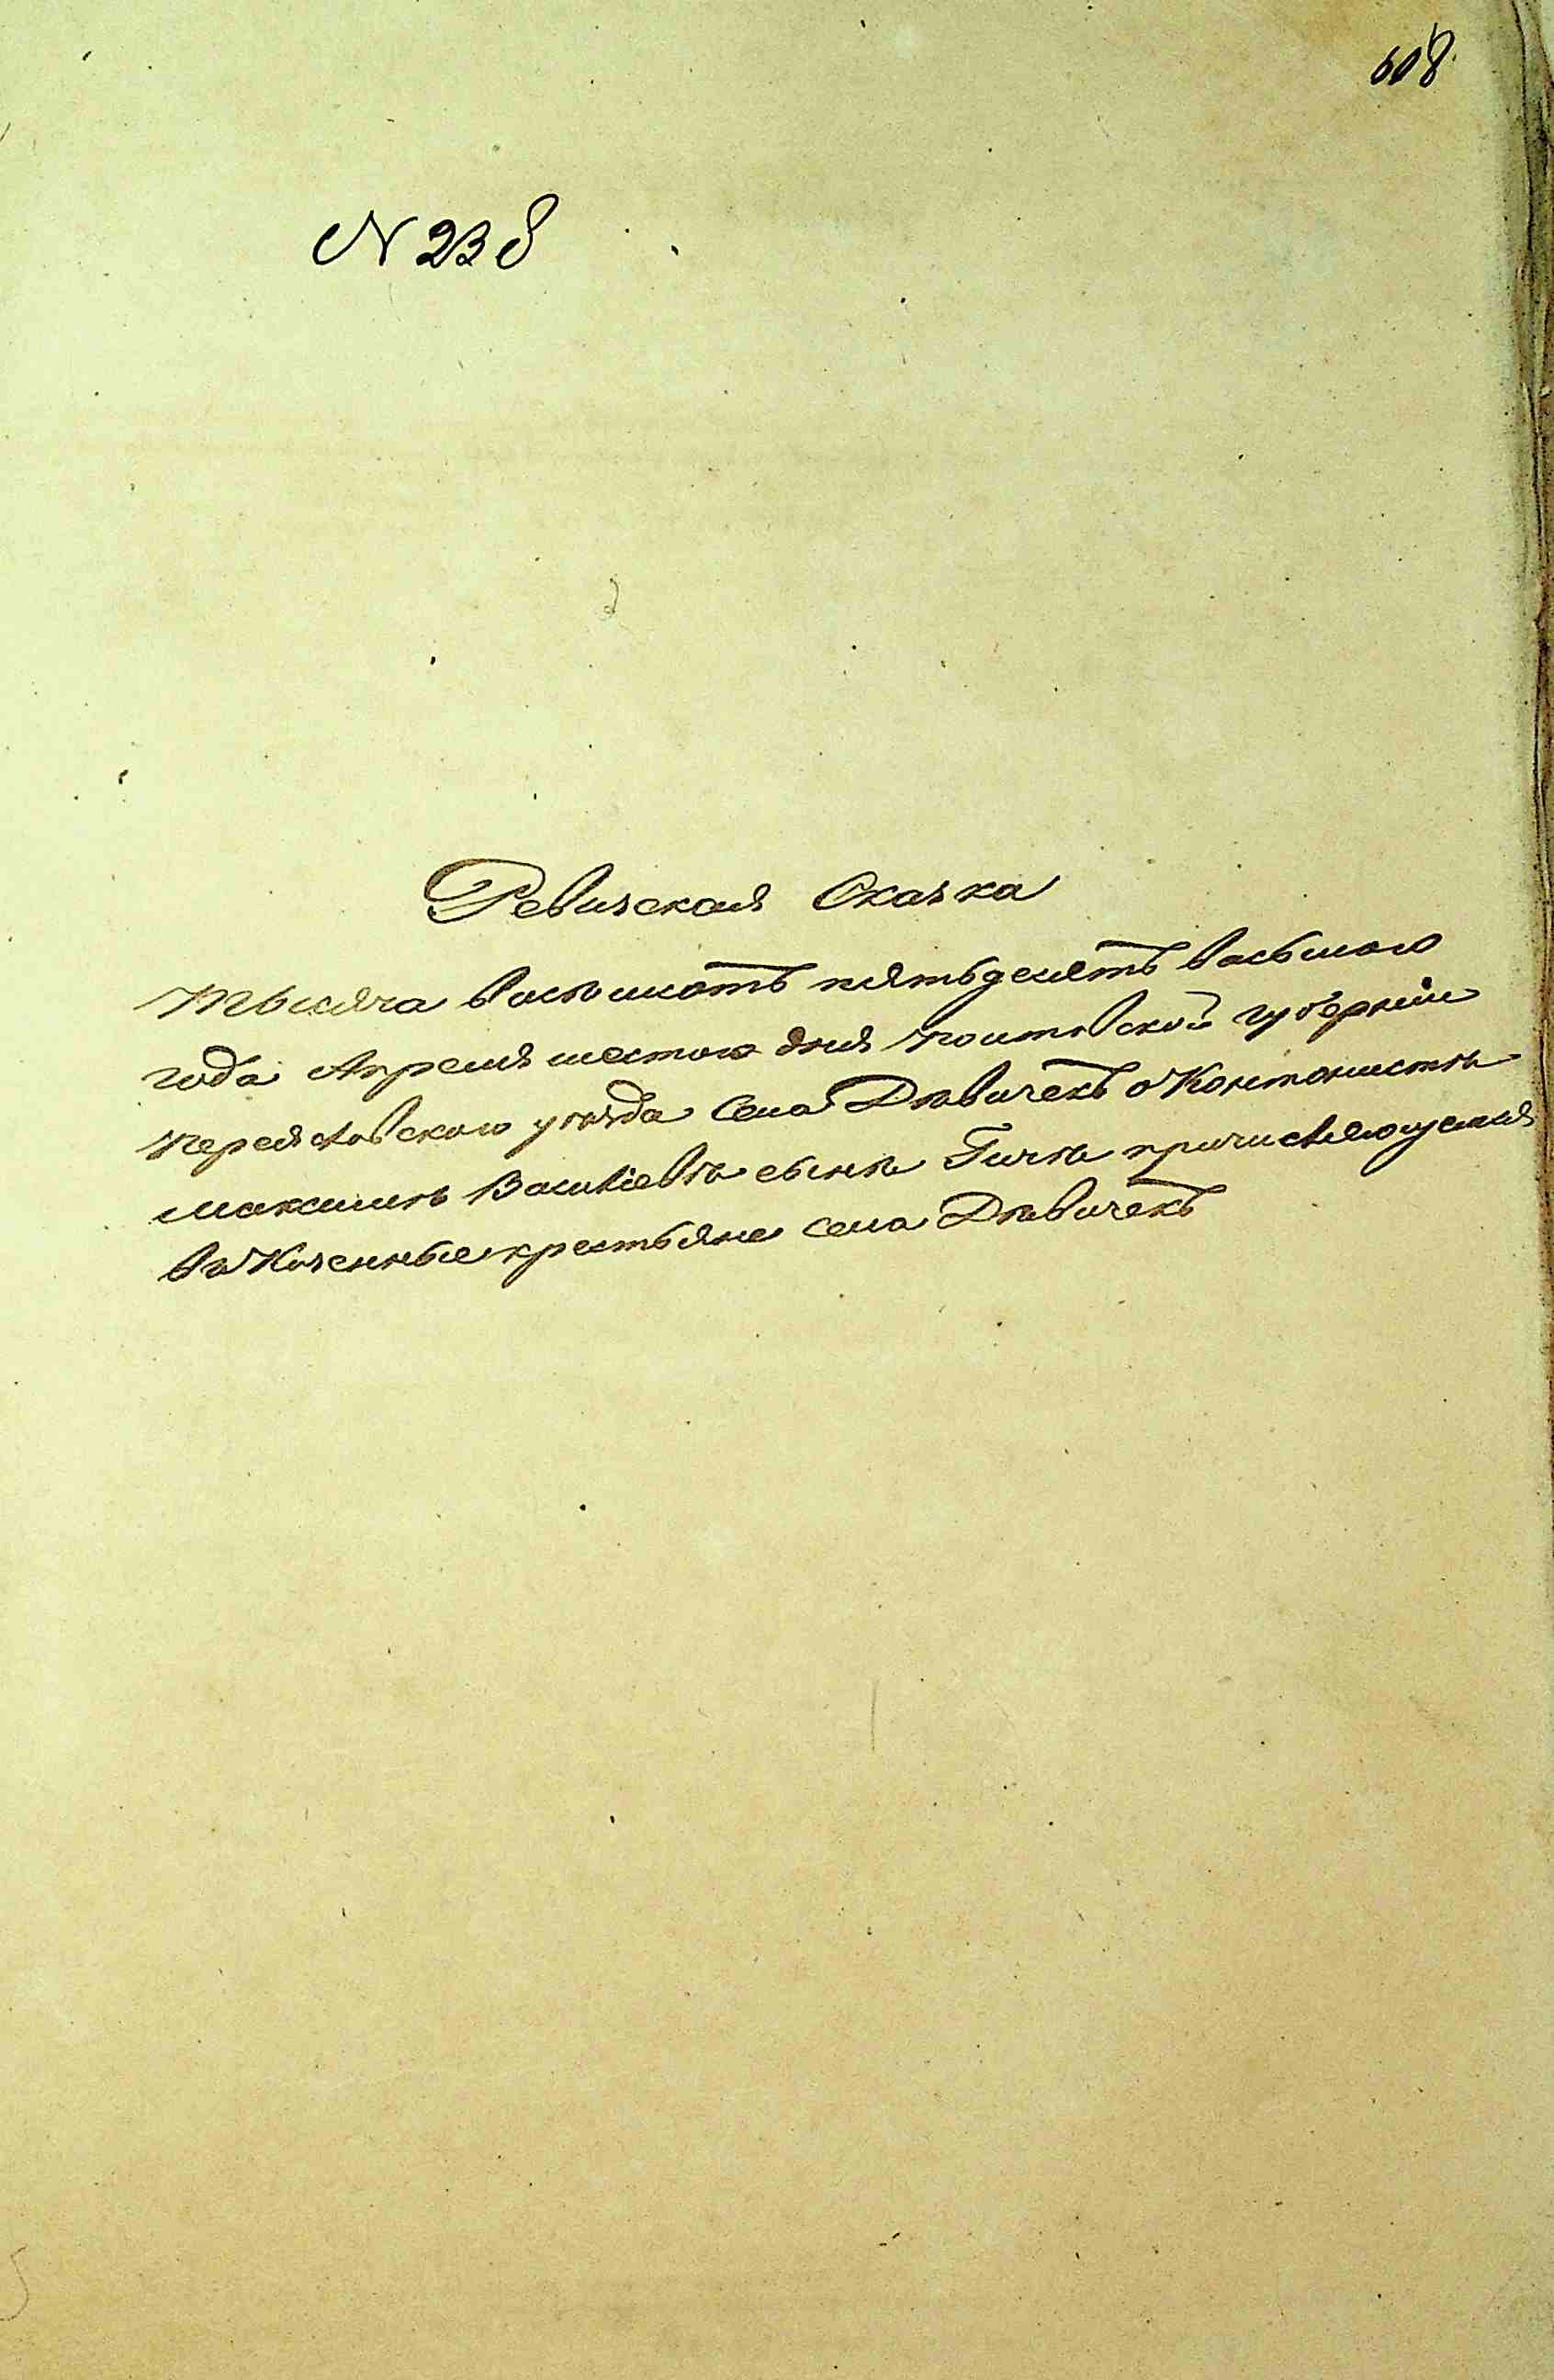 608
N 238
Ревизская Сказка
Тысяча восъмсотъ пятьдесятъ восьмого
года Апреля шестого дня Полтавской губерніи
Переяславского уѣзда Села Дѣвичекъ о Кантонистѣ
Максимѣ Василіевѣ сынѣ Гичкѣ причисляющемся
въ Казенные крестьяне села Дѣвичекъ